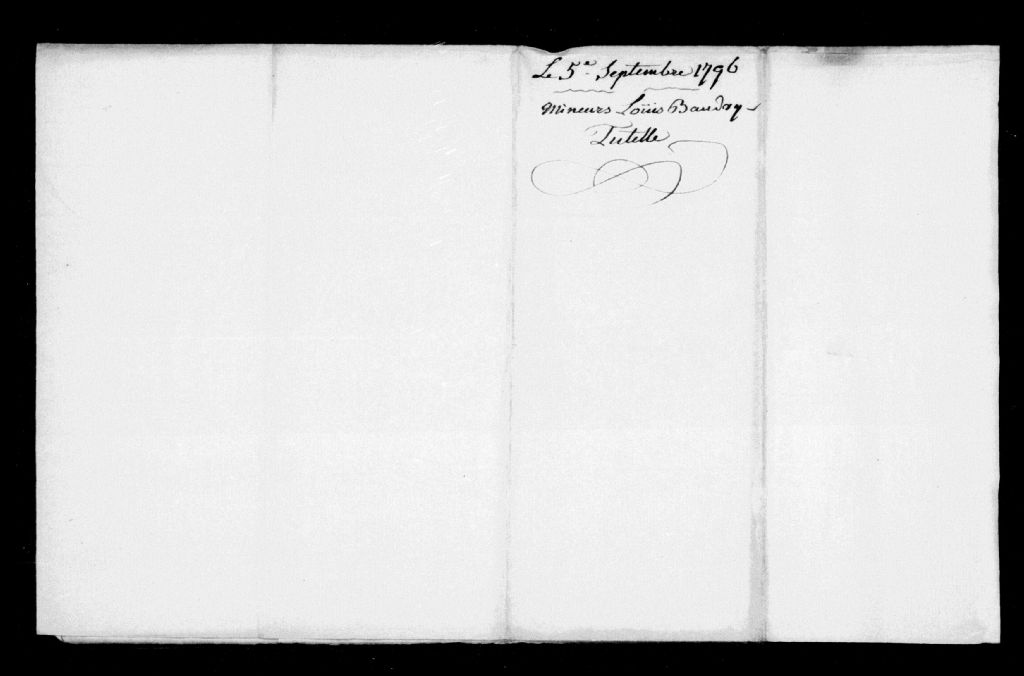 Le 5e. Septembre 1796
Mineurs Loüis Baudry
Tutelle